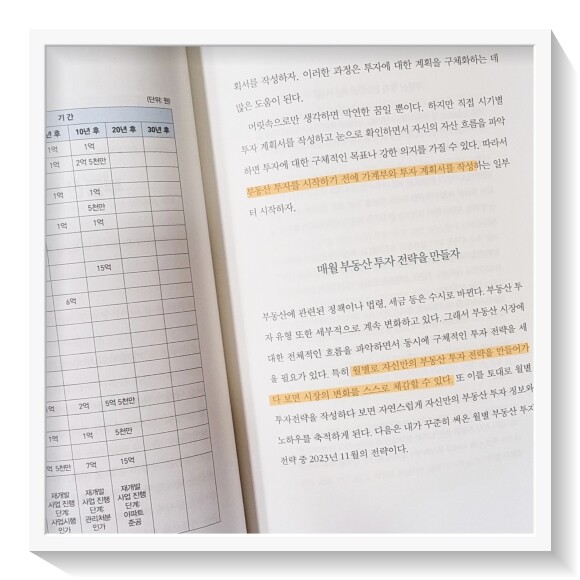 (단위: 원)
기 간
년 후 10년 후 20년 후 30년 후
1억 1억
1억 2억 5천만
1억 1억
5천만
1억 1억
15억
6억
억 2억 5억 5천만
1억 1억 5천만
억 5천만 7억 15억
재개발 재개발 재개발
사업 진행 사업 진행 사업 진행
단계: 단계: 단계:
사업시행 관리처분 아파트
인가 인가 준공
회서를 작성하자. 이러한 과정은 투자에 대한 계획을 구체화하는 데
많은 도움이 된다.
머릿속으로만 생각하면 막연한 꿈일 뿐이다. 하지만 직접 시기별
투자 계획서를 작성하고 눈으로 확인하면서 자신의 자산 흐름을 파악
하면 투자에 대한 구체적인 목표나 강한 의지를 가질 수 있다. 따라서
부동산 투자를 시작하기 전에 가계부와 투자 계획서를 작성하는 일부
터 시작하자.
매월 부동산 투자 전략을 만들자
부동산에 관련된 정책이나 법령, 세금 등은 수시로 바뀐다. 부동산 투
자 유형 또한 세부적으로 계속 변화하고 있다. 그래서 부동산 시장에
대한 전체적인 흐름을 파악하면서 동시에 구체적인 투자 전략을 세
울 필요가 있다. 특히 월별로 자신만의 부동산 투자 전략을 만들어가
다 보면 시장의 변화를 스스로 체감할 수 있다. 또 이를 토대로 월별
투자전략을 작성하다 보면 자연스럽게 자신만의 부동산 투자 정보와
노하우를 축적하게 된다. 다음은 내가 꾸준히 써온 월별 부동산 투자
전략 중 2023년 11월의 전략이다.